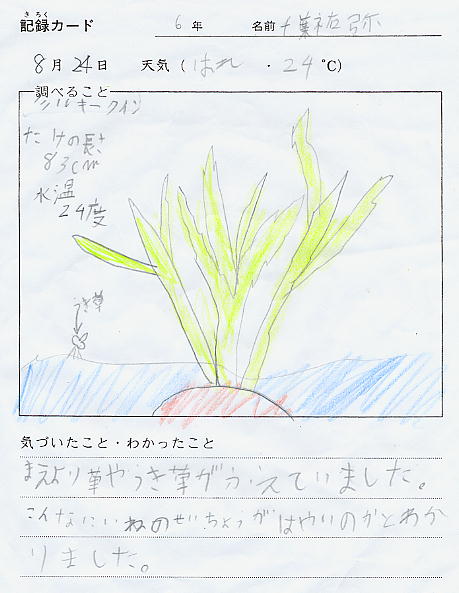 きろく
記録カード
6年 名前 千葉祐弥
8月24日 天気(はれ・24℃)
調べること
ミルキークイン
たけの長さ
83cm
水温
24度
うき草
気づいたこと・わかったこと
まえより草やうき草がふえていました。
こんなにいねのせいちょうがはやいのかとわか
りました。